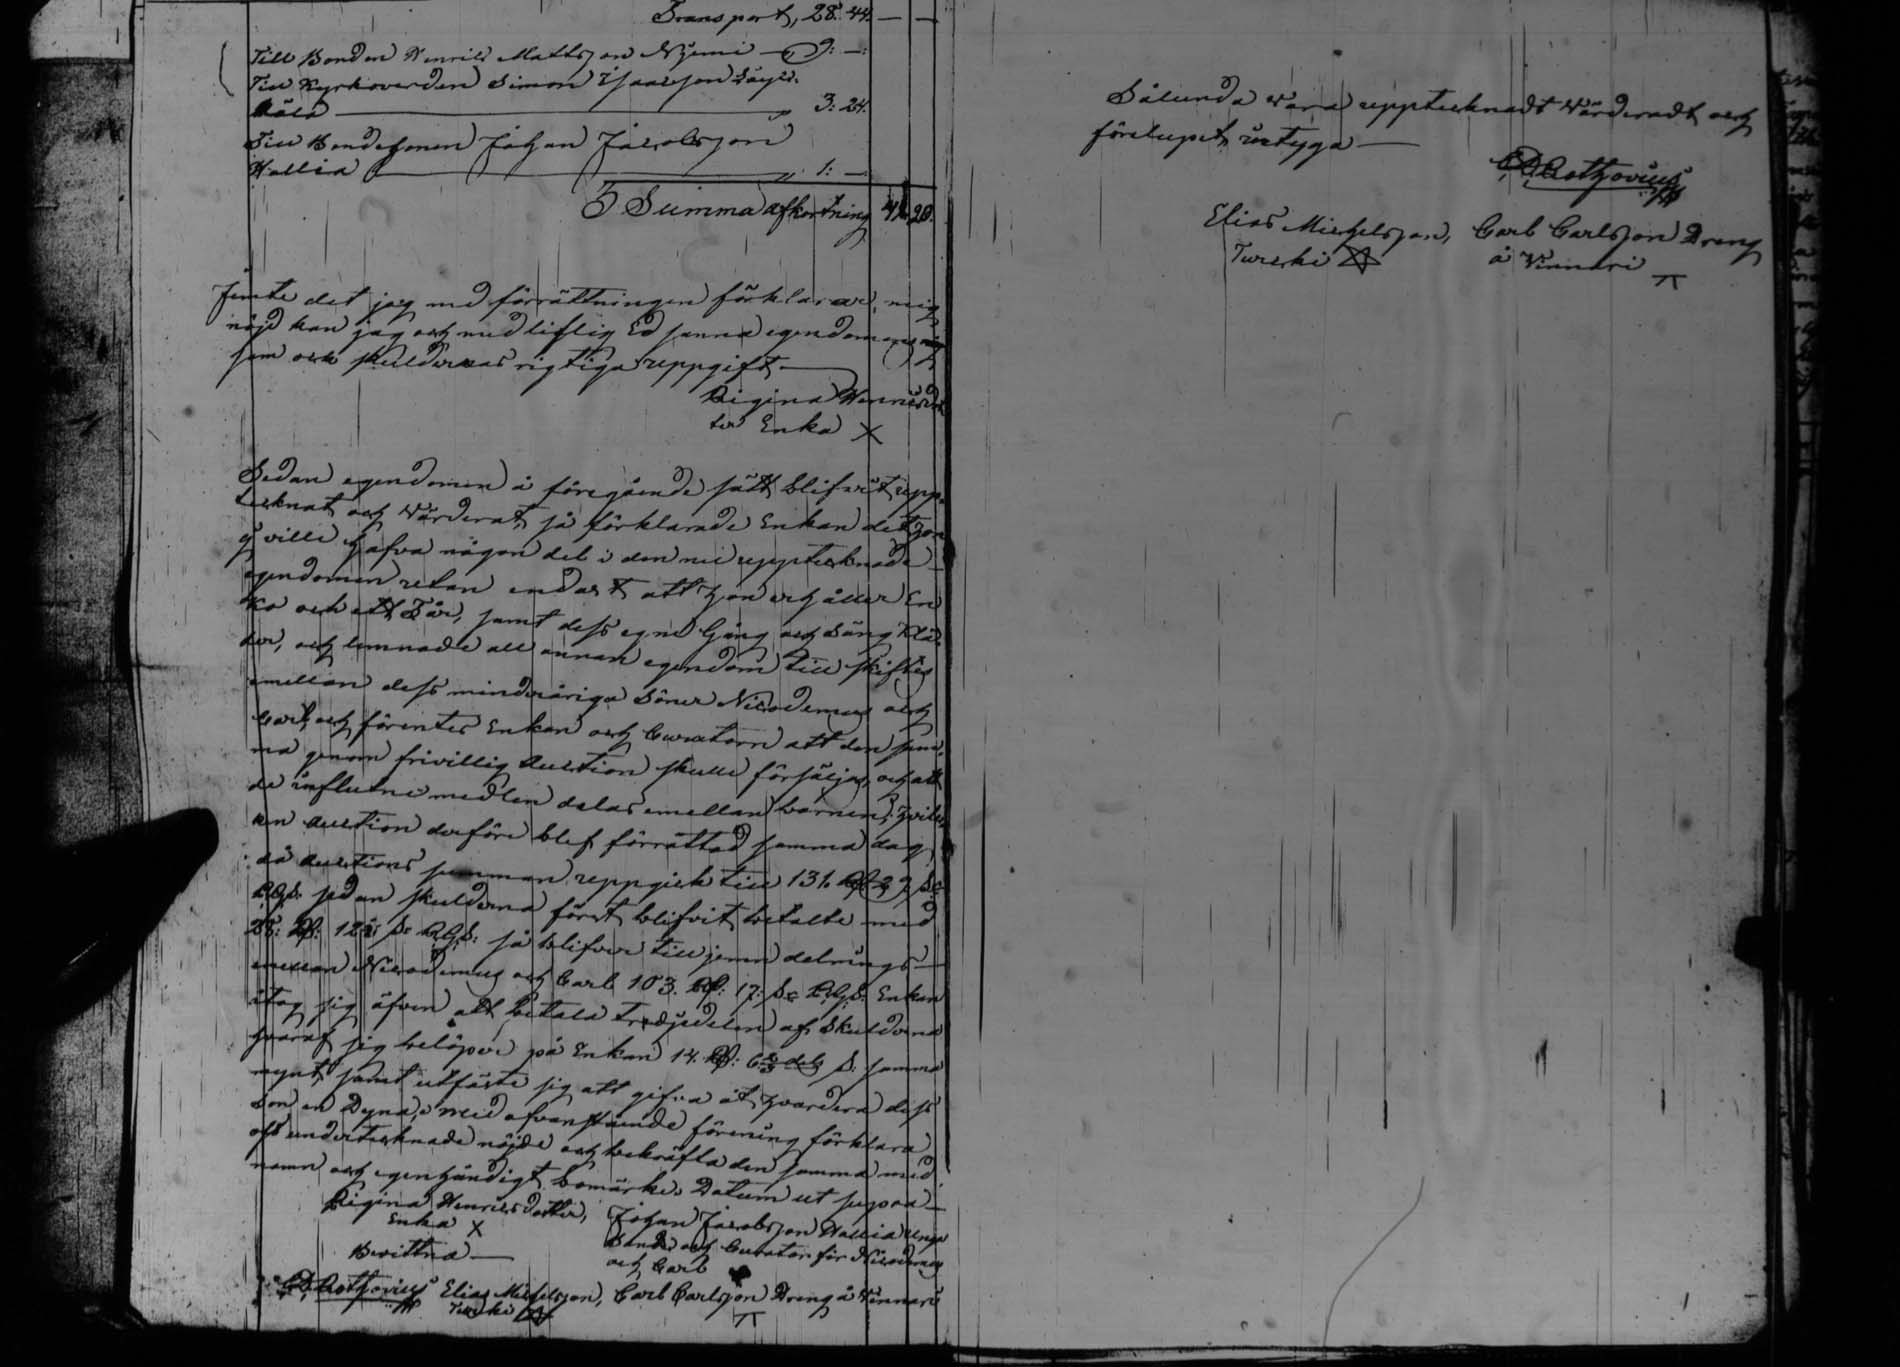 Transport, 28. 44. — —
Till Bonden Henric Mattsson Njemi — 9: —:
Till Kyrkovärden Simon Isacsson
3: 24.
Till Bondesonen Johan Jacobsson
Wallia — 1: —
Summa afkortning 42. 20.
Jemte det jag med förrättningen förklarar mig
nöjd kan jag och med liflig Ed sanna egendomens
som och skuldernas rigtiga uppgift —
Regina Henricsdot
ter Enka X
Sedan egendomen å föregående sätt blifvit upp-
tecknat och värderat, så förklarade Enkan det hon
ej ville hafva någon del i den nu upptecknade
egendomen utan endast att hon erhåller En
Ko och ett Får, samt dess egne Gång och Säng klä-
der, och lemnade all annan egendom till skiftes
emellan dess minderåriga Söner Nicodemus och
Carl, och förentes Enkan och Curatorn att den sam-
ma genom frivillig Auction skulle försäljas, och att
de influtne medlen delas emellan barnen, hvil-
ken Auction derföre blef förrättad samma dag
då Auctions summan uppgick till 131. Rd 29 s
RGs. sedan skulderna först blifvit betalte med
28: Rd: 12 s RGs: så blifver till jemn delnings —
emellan Nicodemus och Carl 103. Rd: 17: s RGs. Enkan
åtog sig äfven att betala tredjedelen af Skulderna
hvaraf sig belöper på Enkan 14. Rd: 6 2/3 dels s: samma
mynt, samt utfäste sig att gifva åt hvardera dess
Son en Dyna, med ofvanstående förening förklara
oss undertecknade nöjde och bekräfta den samma med
namn och egenhändigt bomärke. Datum ut supra —
Regina Henricsdotter,
Enka X
Johan Jacobsson Wallia unga
Bonde och Curator för Nicodemus
och Carl
Bevittna —
Elias Michelsson,
Turcki
Carl Carlsson Dreng å Vinnari
Sålunda vara upptecknadt värderadt och
förelupet intyga —
Elias Michelsson,
Turcki
Carl Carlsson Dreng
å Vinnari